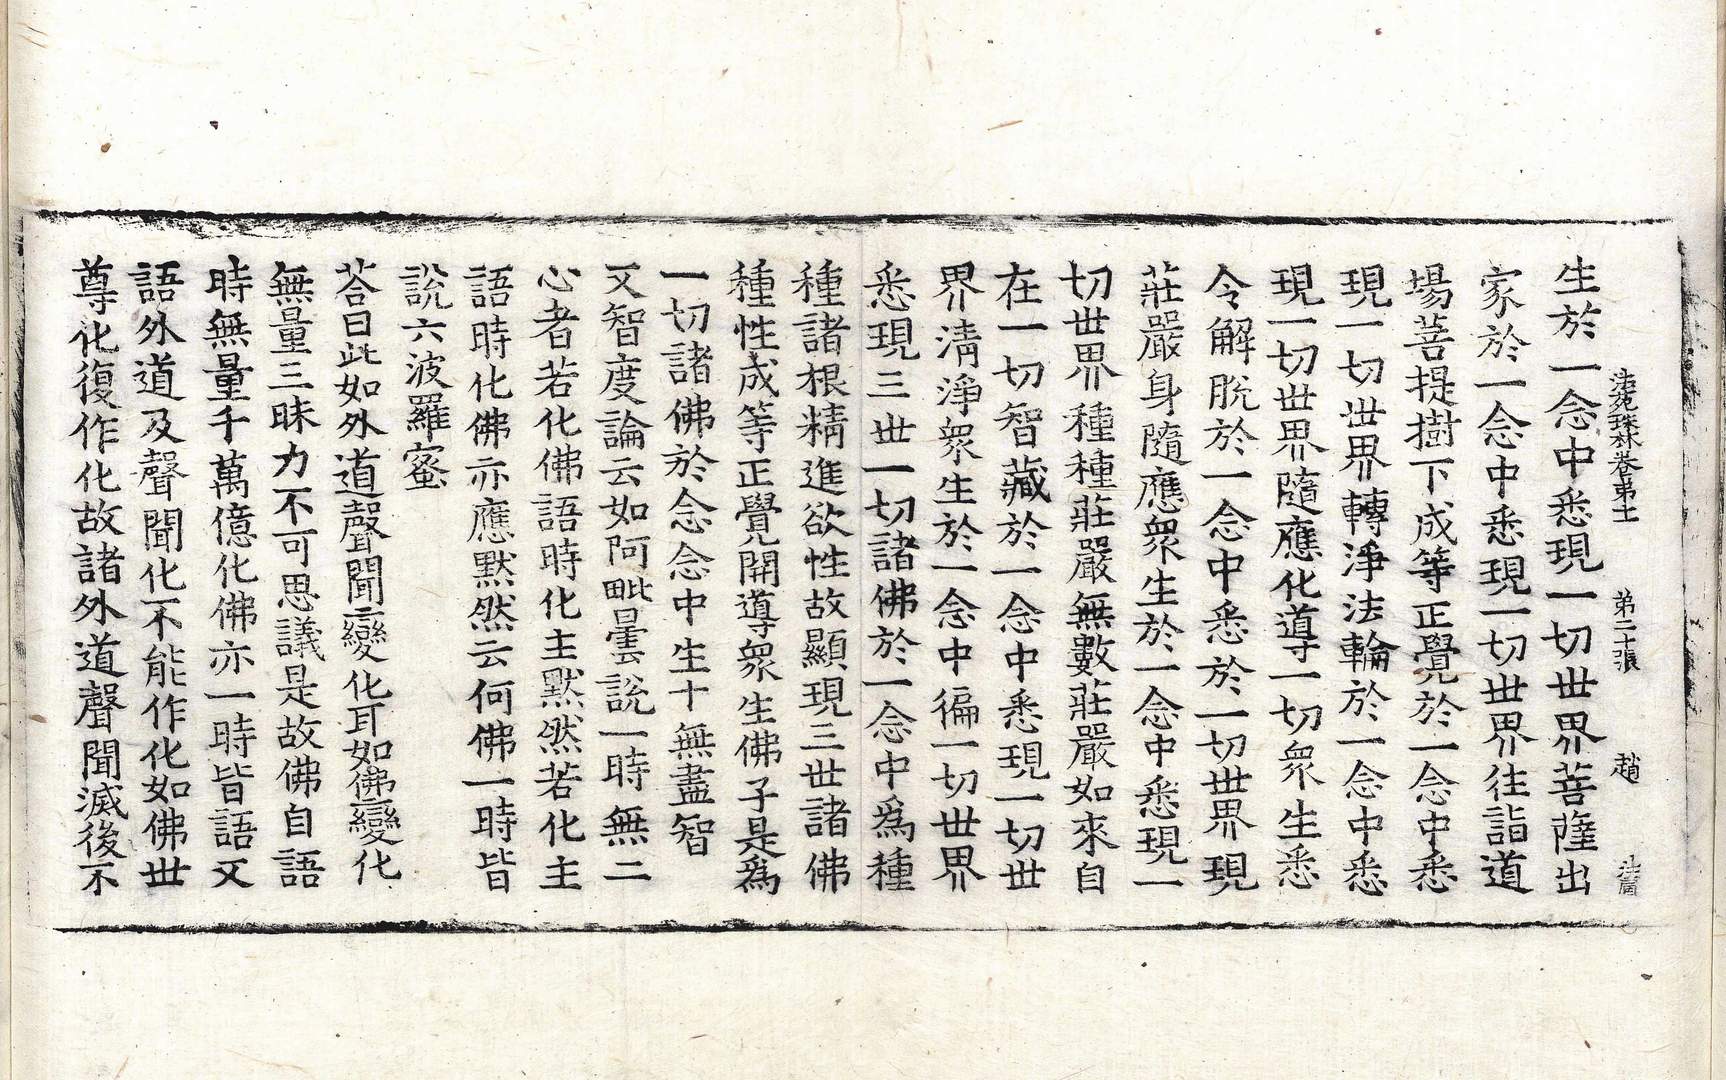 法苑珠林卷苐十二 苐二十張 趙
生於一念中悉現一切世界菩薩出
家於一念中悉現一切世界往詣道
場菩提樹下成等正覺於一念中悉
現一切世界轉淨法輪於一念中悉
現一切世界隨應化導一切衆生悉
令解脫於一念中悉於一切世界現
莊嚴身隨應衆生於一念中悉現一
切世界種種莊嚴無數莊嚴如來自
在一切智藏於一念中悉現一切世
界淸淨衆生於一念中徧一切世界
悉現三世一切諸佛於一念中爲種
種諸根精進欲性故顯現三世諸佛
種性成等正覺開導衆生佛子是爲
一切諸佛於念念中生十無盡智
又智度論云如阿毗曇說一時無二
心者若化佛語時化主默然若化主
語時化佛亦應默然云何佛一時皆
說六波羅蜜
荅曰此如外道聲聞變化耳如佛變化
無量三昧力不可思議是故佛自語
時無量千萬億化佛亦一時皆語又
語外道及聲聞化不能作化如佛世
尊化復作化故諸外道聲聞滅後不